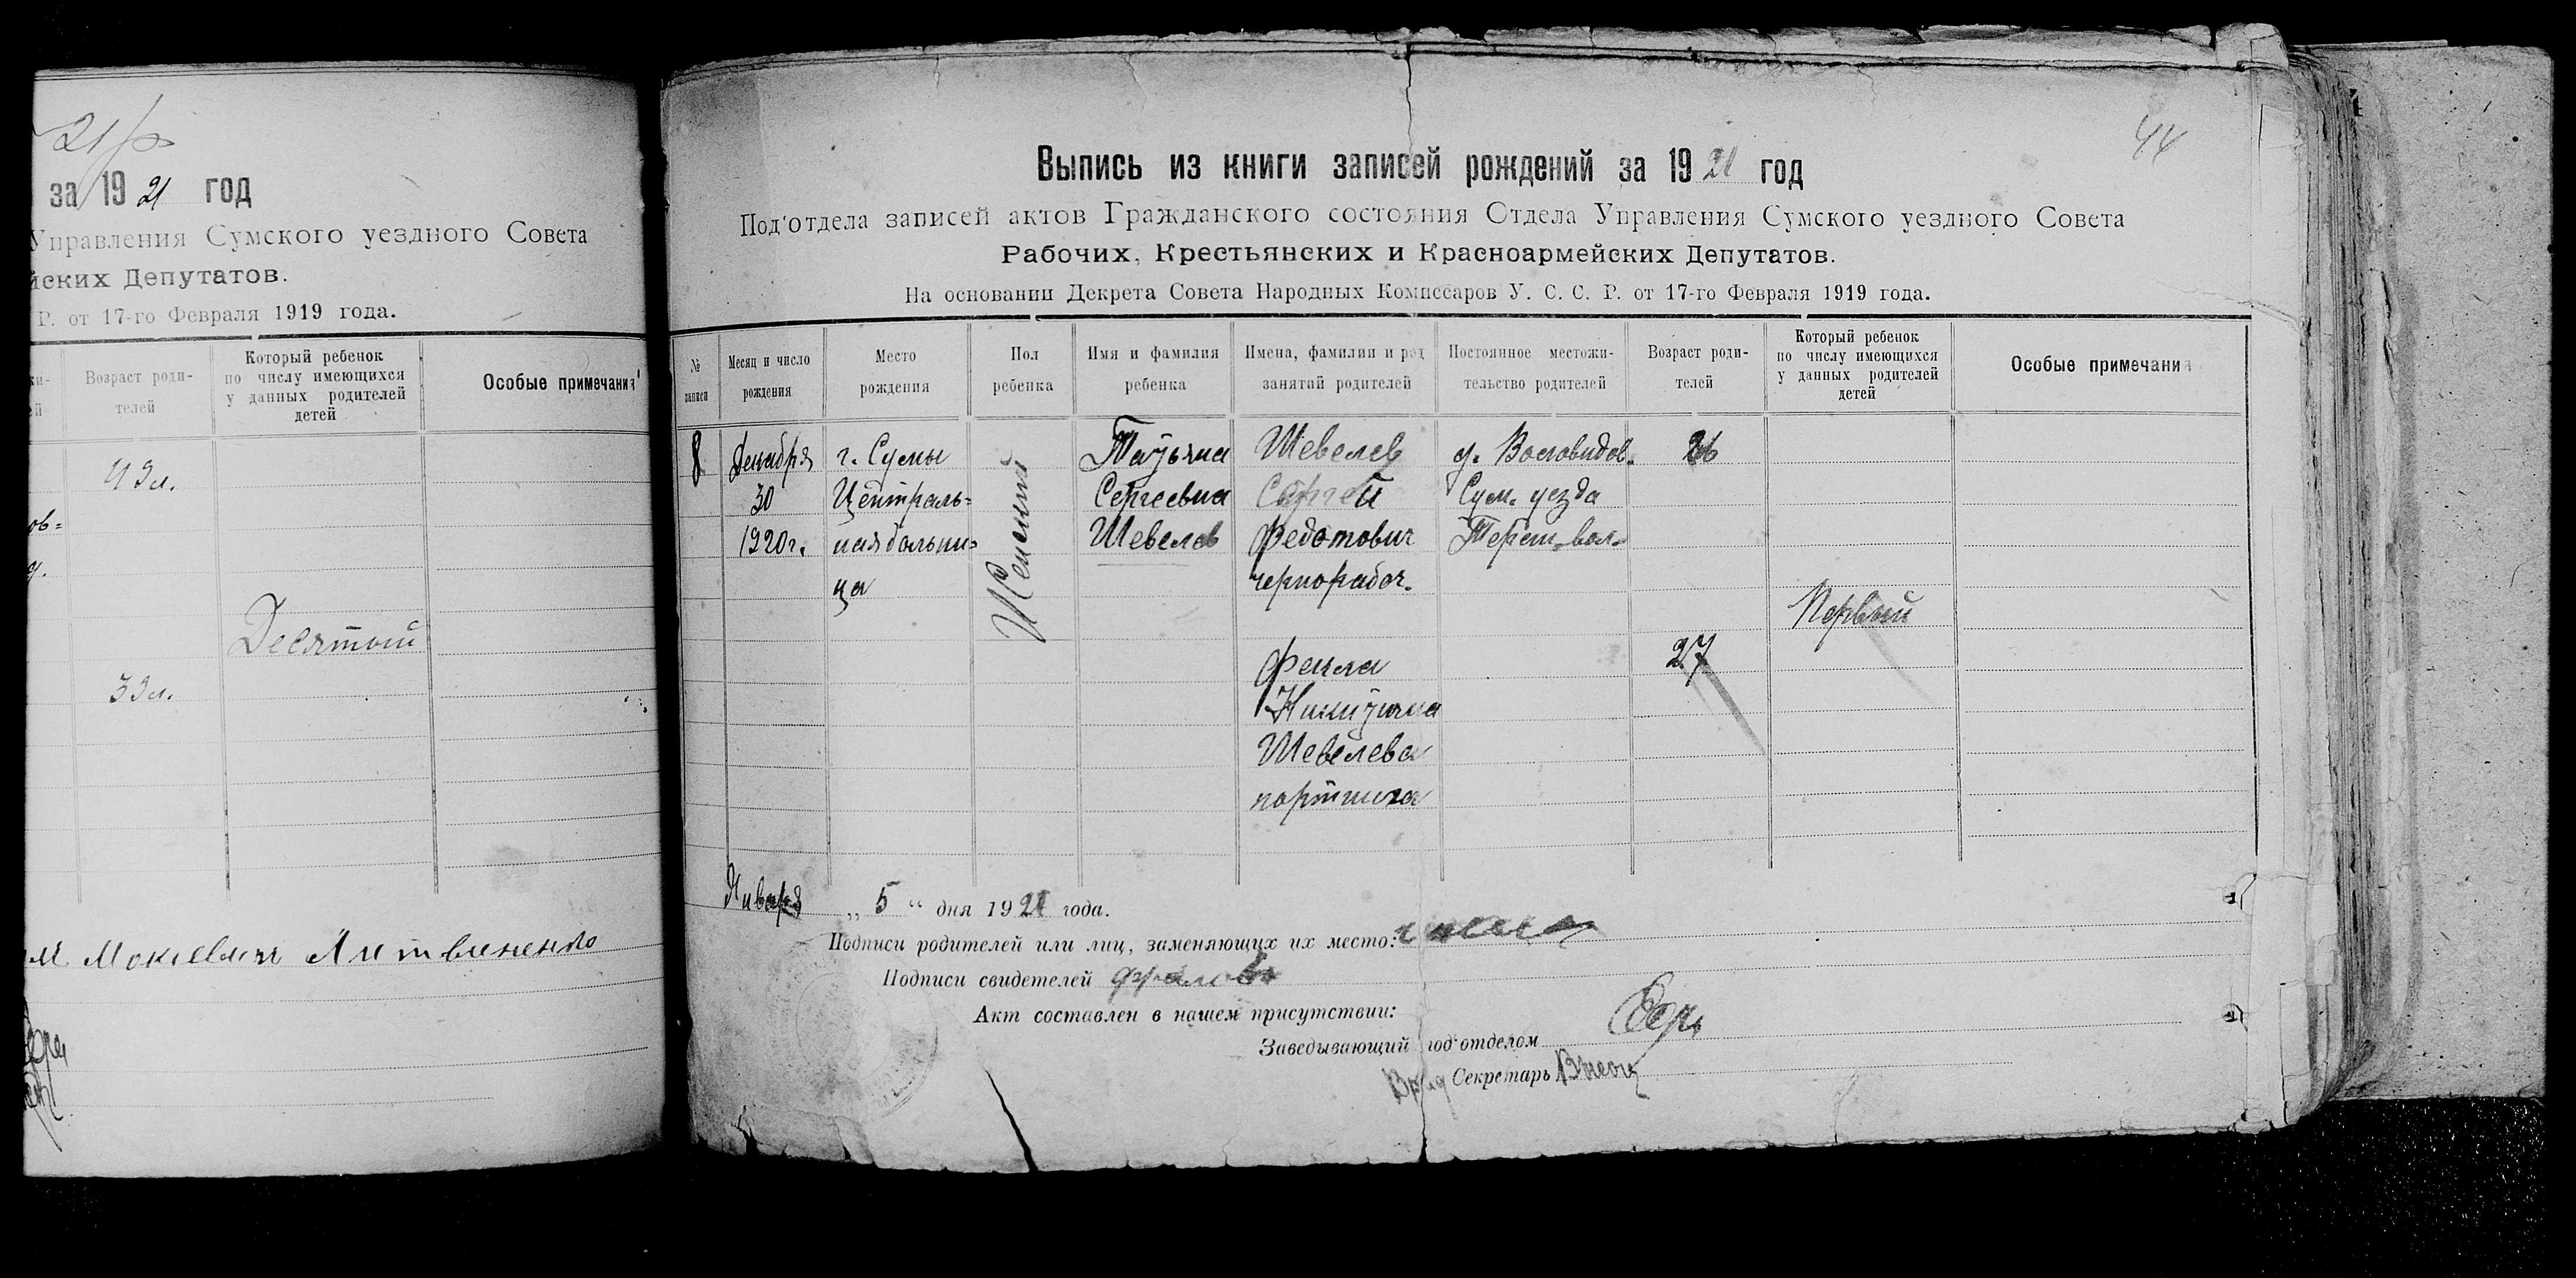 21
за 1921 год
Управления Сумского уездного Совета
йских Депутатов.
Р. от 17-го Февраля 1919 года.
Возраст роди-
телей
Который ребенок
по числу имеющихся
у данных родителей
детей
Особые примечания
43 л.
ов=
Десятый
33 л.
Мокиевич Литвиненко
44
Выпись из книги записей рождений за 1921 год
Под'отдела записей актов Гражданского состояния Отдела Управления Сумского уездного Совета
Рабочих, Крестьянских и Красноармейских Депутатов.
На основании Декрета Совета Народных Комиссаров У. С. С. Р. от 17-го Февраля 1919 года.
№
записи
Месяц и число
рождения
Место
рождения
Пол
ребенка
Имя и фамилия
ребенка
Имена, фамилии и род
занятий родителей
Постоянное местожи-
тельство родителей
Возраст роди-
телей
Который ребенок
по числу имеющихся
у данных родителей
детей
Особые примечания
8
Декабря
30
1920 г.
г. Сумы
Централь=
ная больни=
ца
Женский
Татьяна
Сергеевна
Шевелев
Шевелев
Сергей
Федотович
чернорабоч.
Фекла
Никитична
Шевелева
портниха
Сум. уезда
Терешк. вол.
26
27
Первый
Января „ 5 “ дня 1921 года.
Подписи родителей или лиц, заменяющих их место:
Подписи свидетелей
Акт составлен в нашем присутствии:
Заведывающий под'отделом
Врид Секретарь